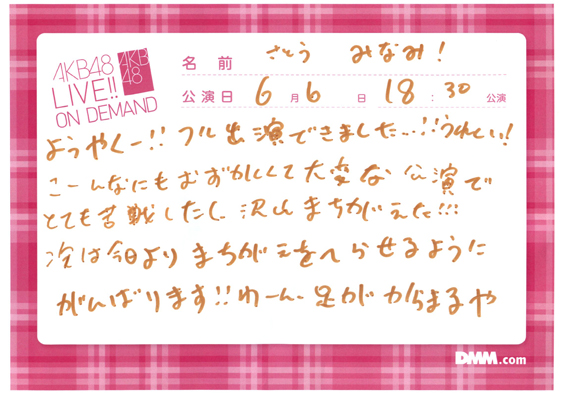 AKB48
LIVE!!
ON DEMAND
AKB
48
名前 さとう みなみ!
公演日 6月6日 18:30公演
ようやくー!! フル出演できました...!!うれしい!
こーんなにもむずかしくて大変な 公演で
とても苦戦したし、沢山まちがえた!!!
次は今日より まちがえをへらせるように
がんばります!! わーん、足が からまるや
DMM.com